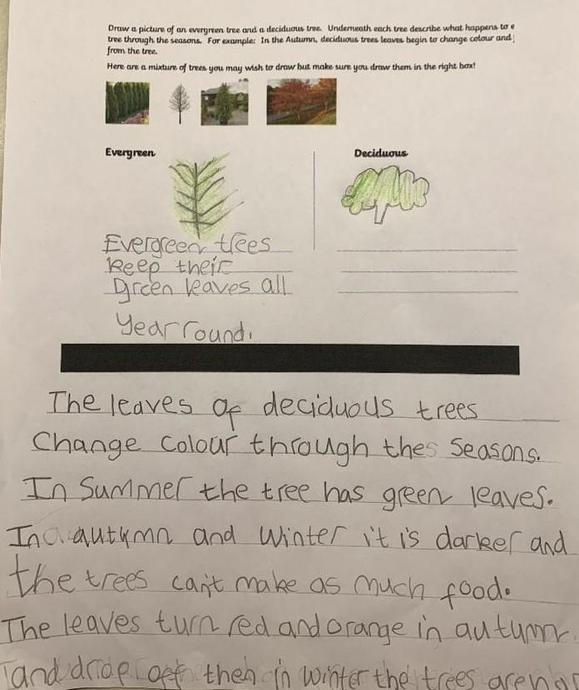 Draw a picture of an evergreen tree and a deciduous tree. Underneath each tree describe what happens to
tree through the seasons. For example: In the Autumn, deciduous trees leaves begin to change colour and
from the tree.
Here are a mixture of trees you may wish to draw but make sure you draw them in the right box!
Evergreen
Evergreen trees
keep their
green leaves all
year round.
Deciduous
The leaves of deciduous trees
Change colour through the seasons.
In Summer the tree has green leaves.
In autumn and winter it is darker and
the trees can't make as much food.
The leaves turn red and orange in autumn.
and drop off then in winter the trees